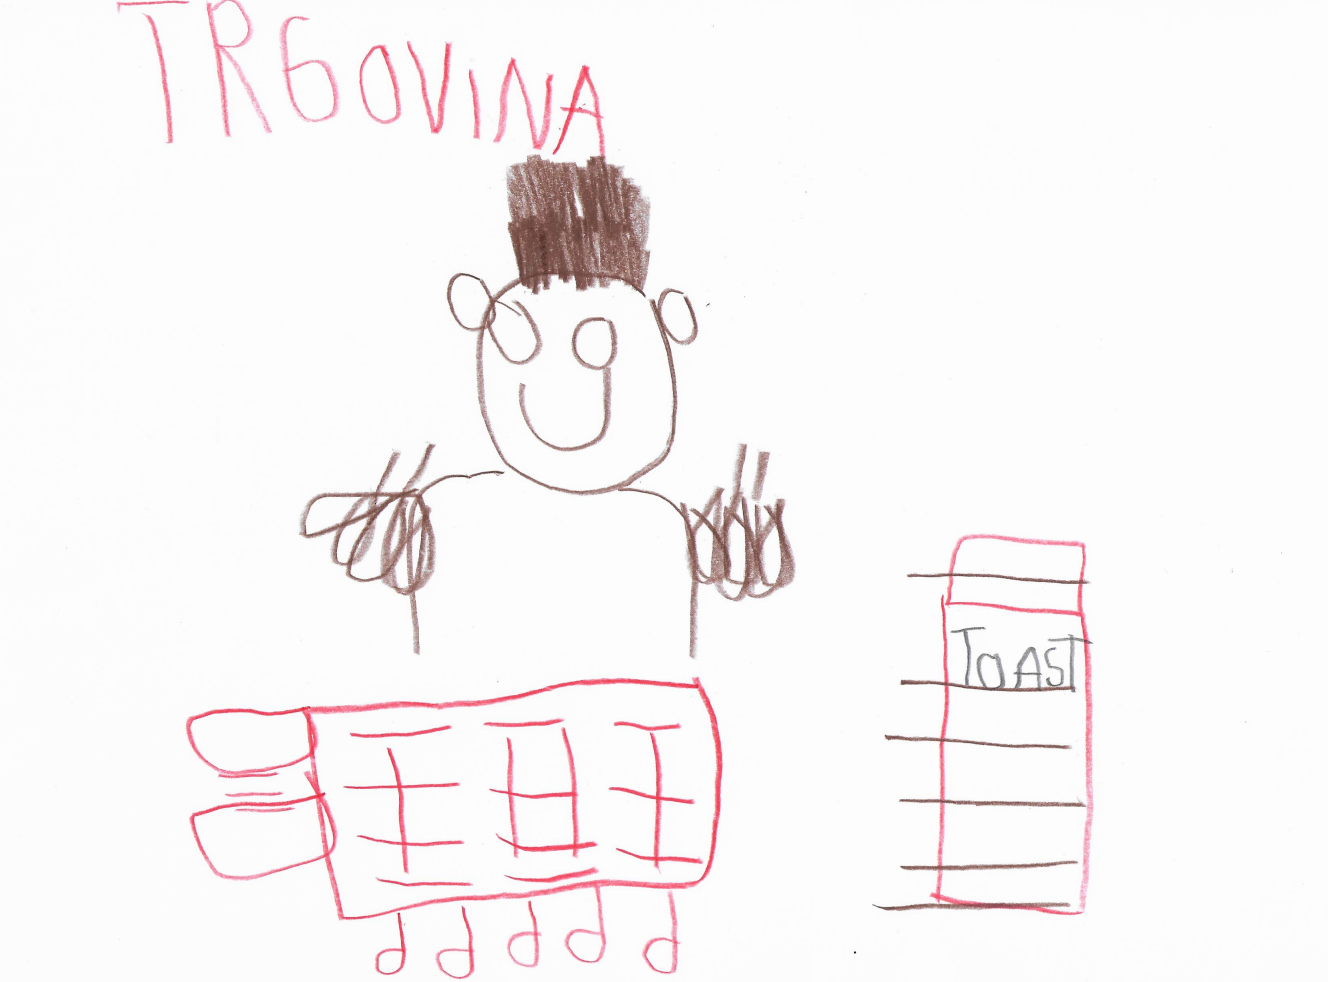 TRGOVINA
TOAST